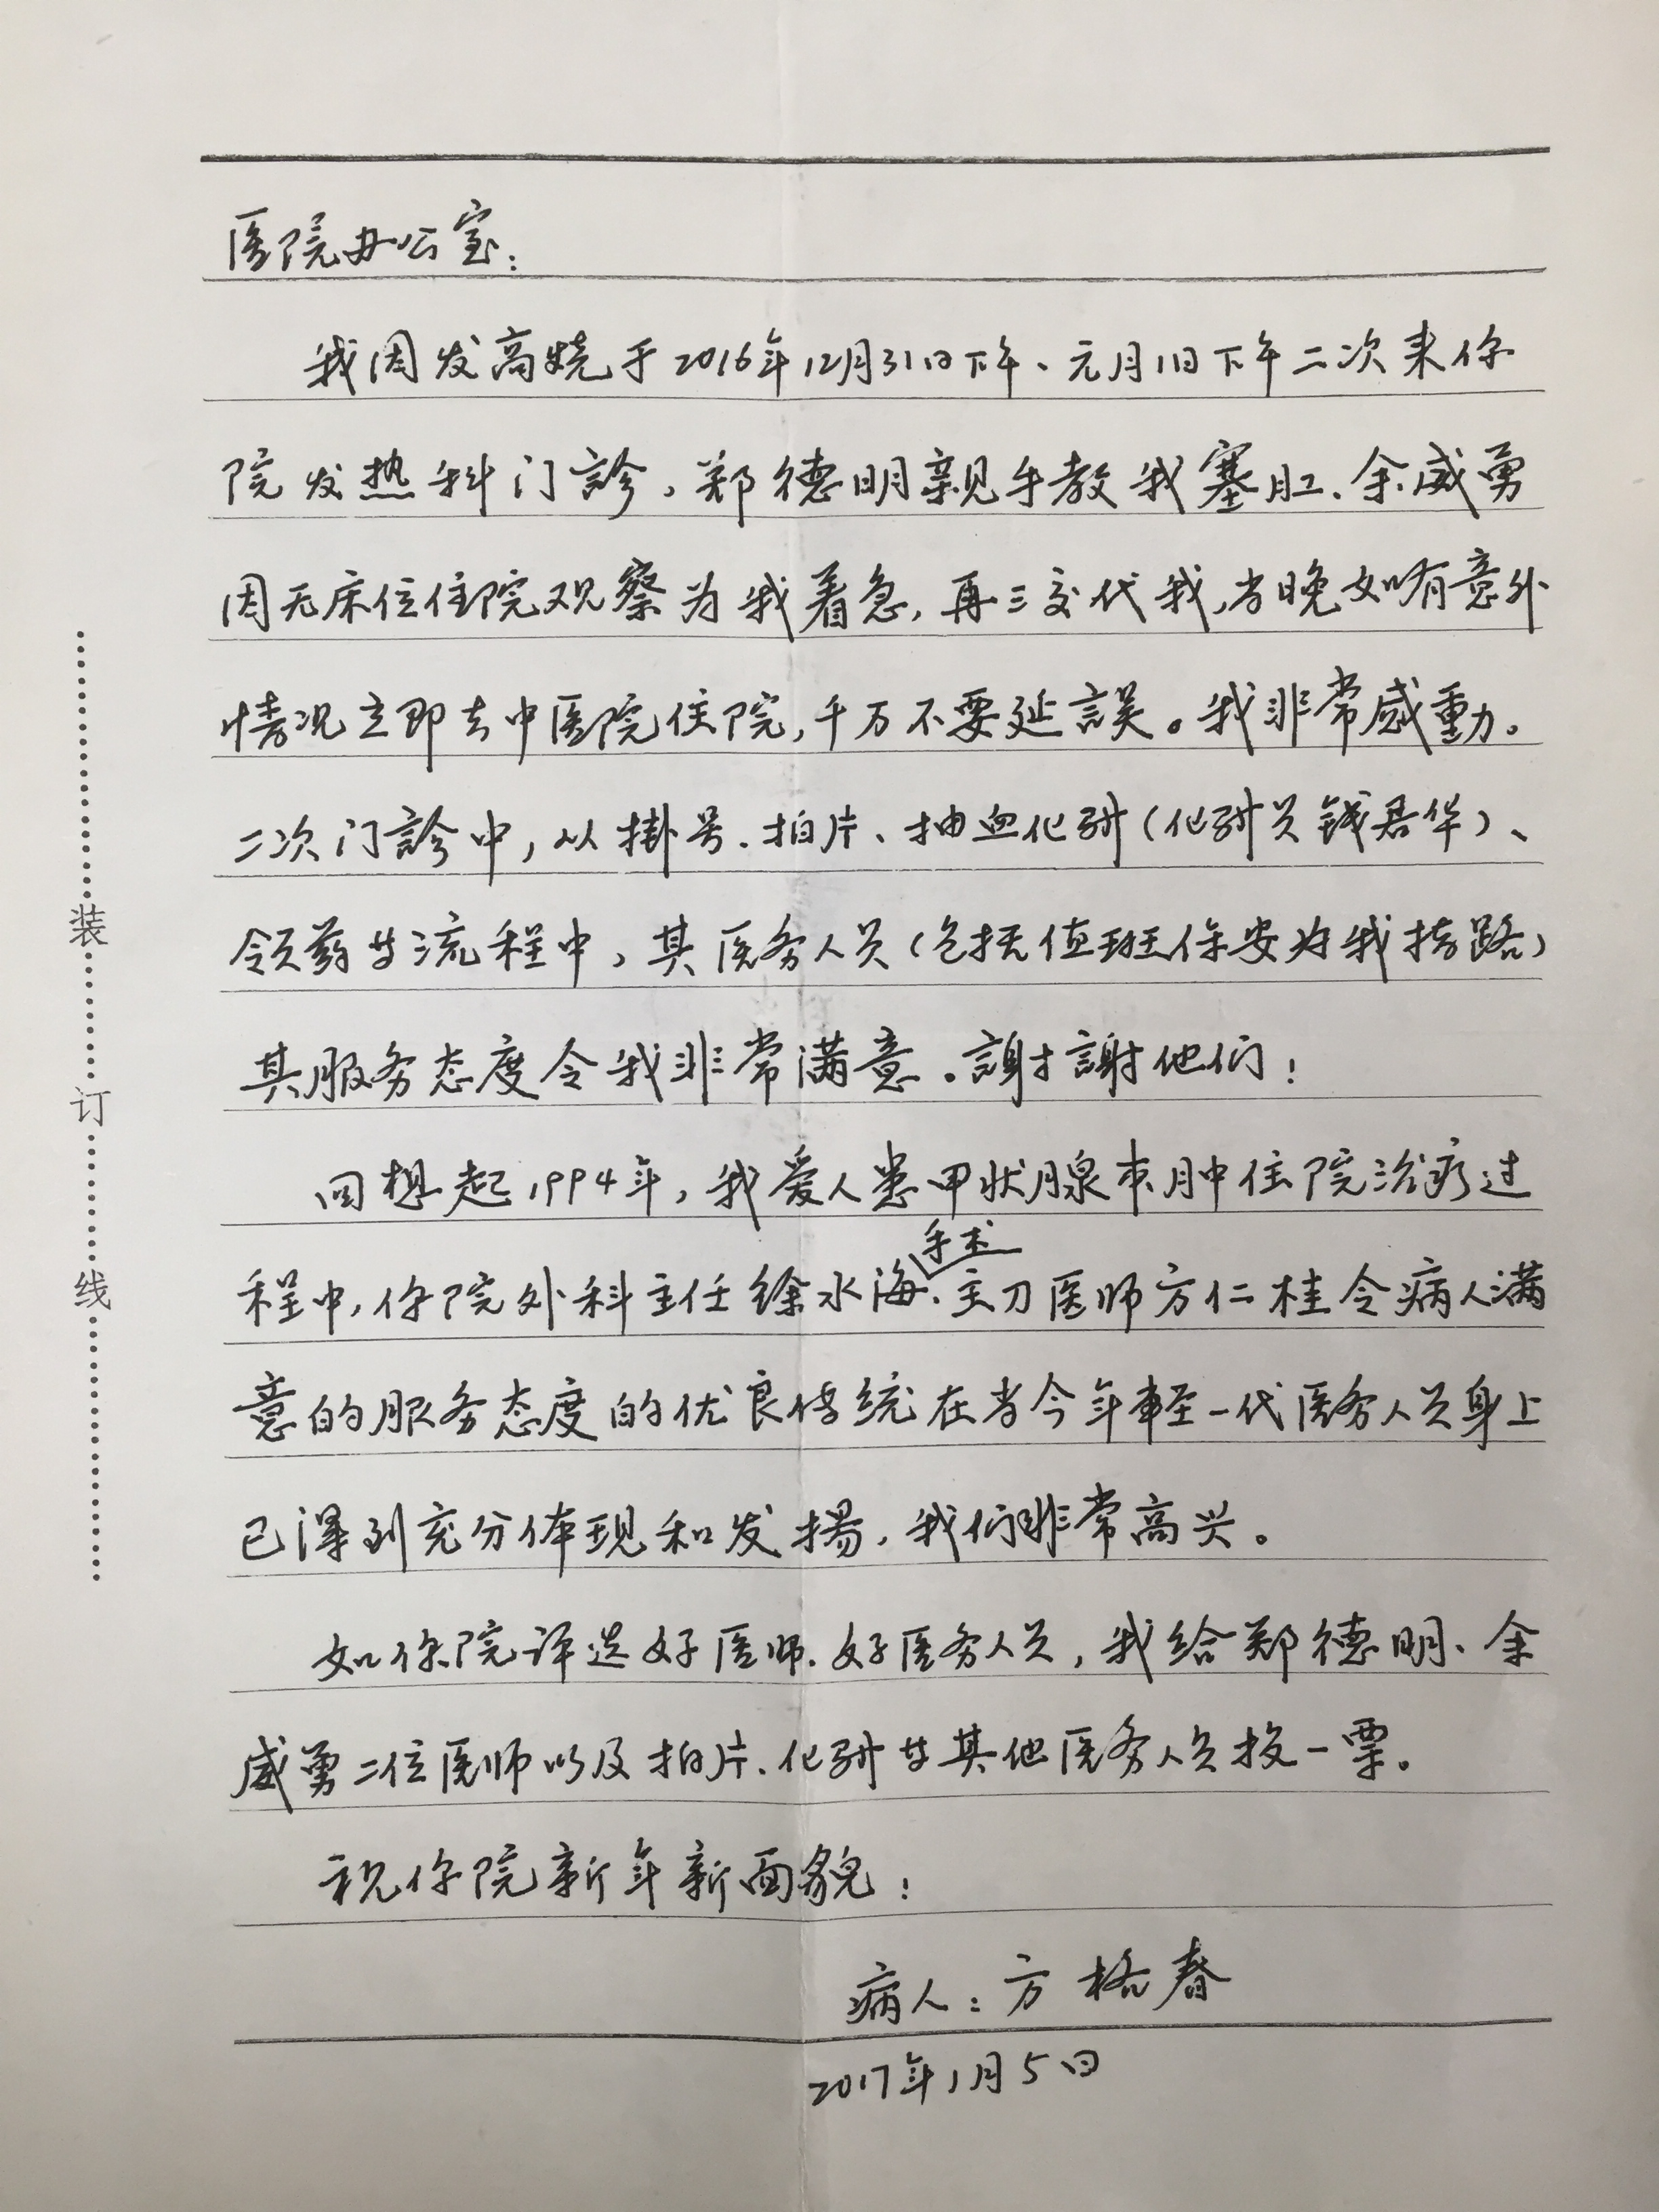 医院办公室：
我因发高烧于2016年12月31日下午、元月1日下午二次来你
院发热科门診，郑德明亲见手教我塞肛、余威勇
因无床位住院观察为我着急，再三交代我，当晚如有意外
情况立即去中医院住院，千万不要延誤。我非常感動。
二次门診中，从掛号、拍片、抽血化验（化验员钱君华）、
领药等流程中，其医务人员（包括值班保安为我指路）
其服务态度令我非常满意。謝謝他们！
回想起1994年，我爱人患甲状腺囊肿住院治疗过
手术
程中，你院外科主任徐水海、主刀医师方仁桂令病人满
意的服务态度的优良传统在当今年轻一代医务人员身上
已得到充分体现和发揚，我们非常高兴。
如你院评选好医师、好医务人员，我给郑德明、余
威勇二位医师以及拍片、化验等其他医务人员投一票。
祝你院新年新面貌！
病人：方格春
2017年1月5日
装
订
线